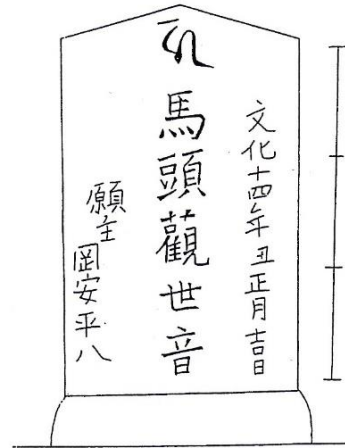 文化十四年丑正月吉日
馬頭觀世音
願主
岡安平八